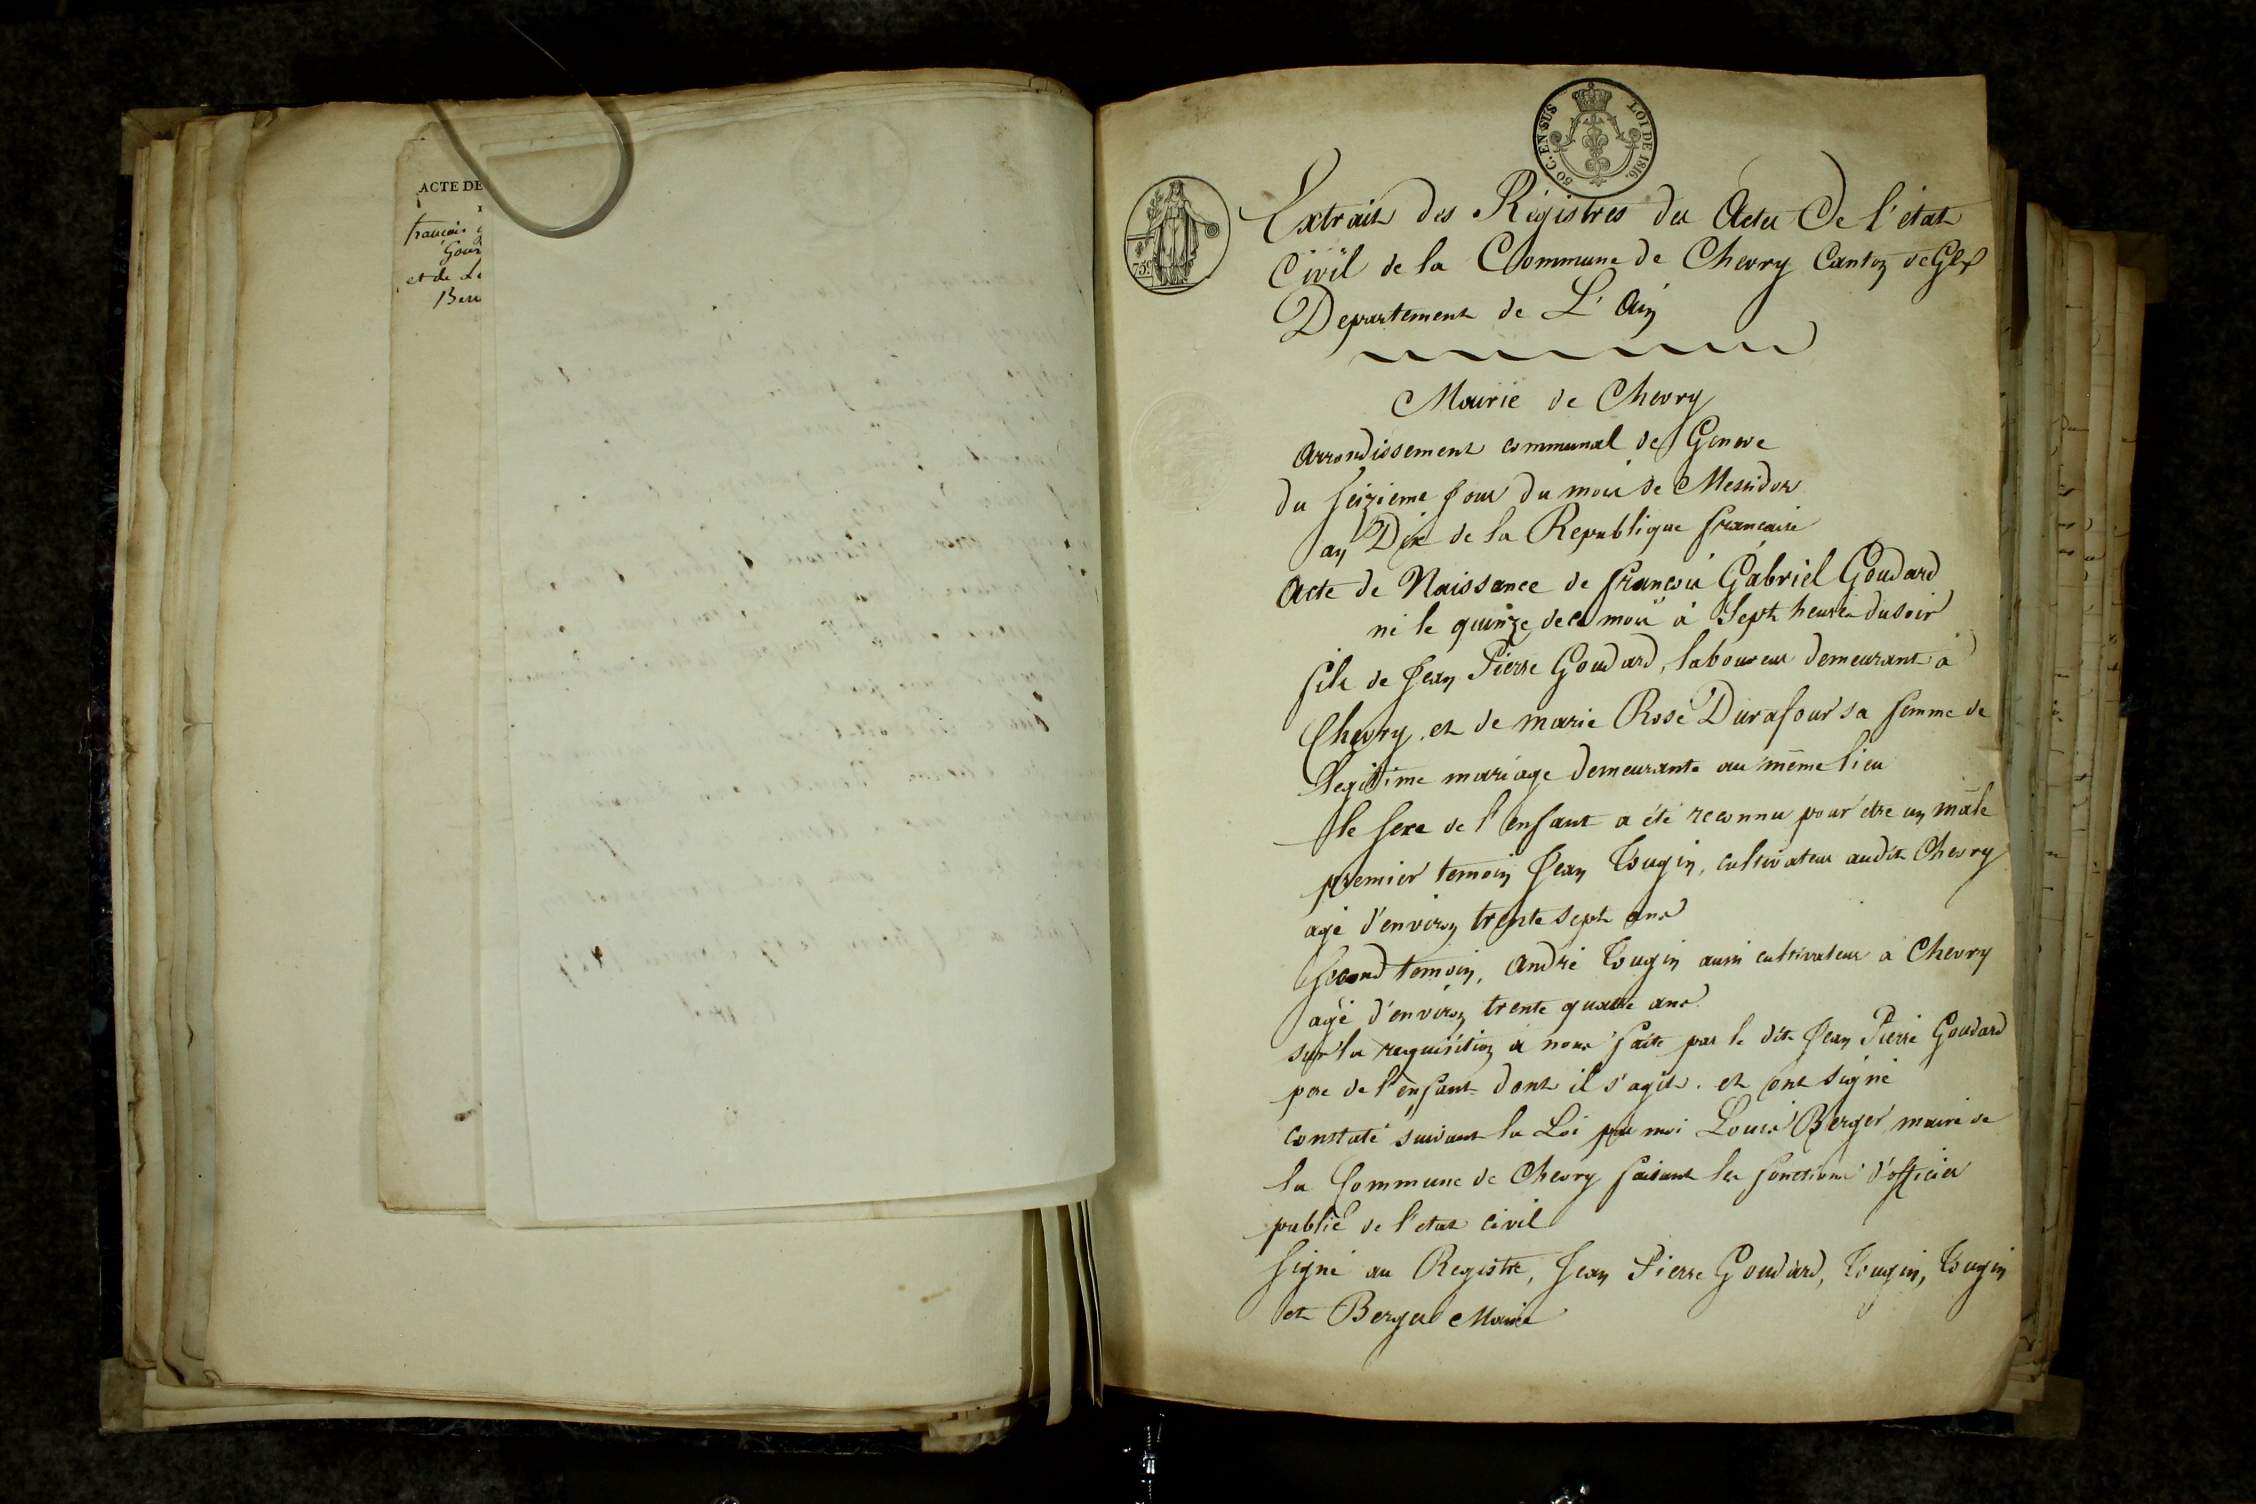 ACTE DE
françois
Gour
et de L
Ber
50 C. EN SUS
LOI DE 1816.
75c
Extrait des Registres des Actes De l'état
Civil de la Commune de Chevry Canton de Gex
Departement de L'Ain
Mairie de Chevry
Arrondissement communal de Geneve
du seizieme Jour du mois de Messidor
an Dix de la Republique francaise
Acte de Naissance de francois Gabriel Goudard
né le quinze de ce mois à Sept heures du soir
fils de Jean Pierre Goudard, laboureur demeurant à
Chevry, et de marie Rose Durafour sa femme de
legitime mariage demeurante au même lieu
le sexe de l'enfant a été reconnu pour etre un mâle
premier temoin Jean Tougin, cultivateur audit Chevry
agé d'environ trente sept ans
second temoin, André Tougin aussi cultivateur a Chevry
agé d'environ trente quatre ans.
sur la requisition à nous faite par le dit Jean Pierre Goudard
pere de l'enfant dont il s'agit. et ont signé
constaté suivant la Loi par moi Louis Berger maire de
la Commune de Chevry faisant les fonctions d'officier
public de l'etat civil
signé au Registre, Jean Pierre Goudard, Tougin, Tougin
et Berger Maire